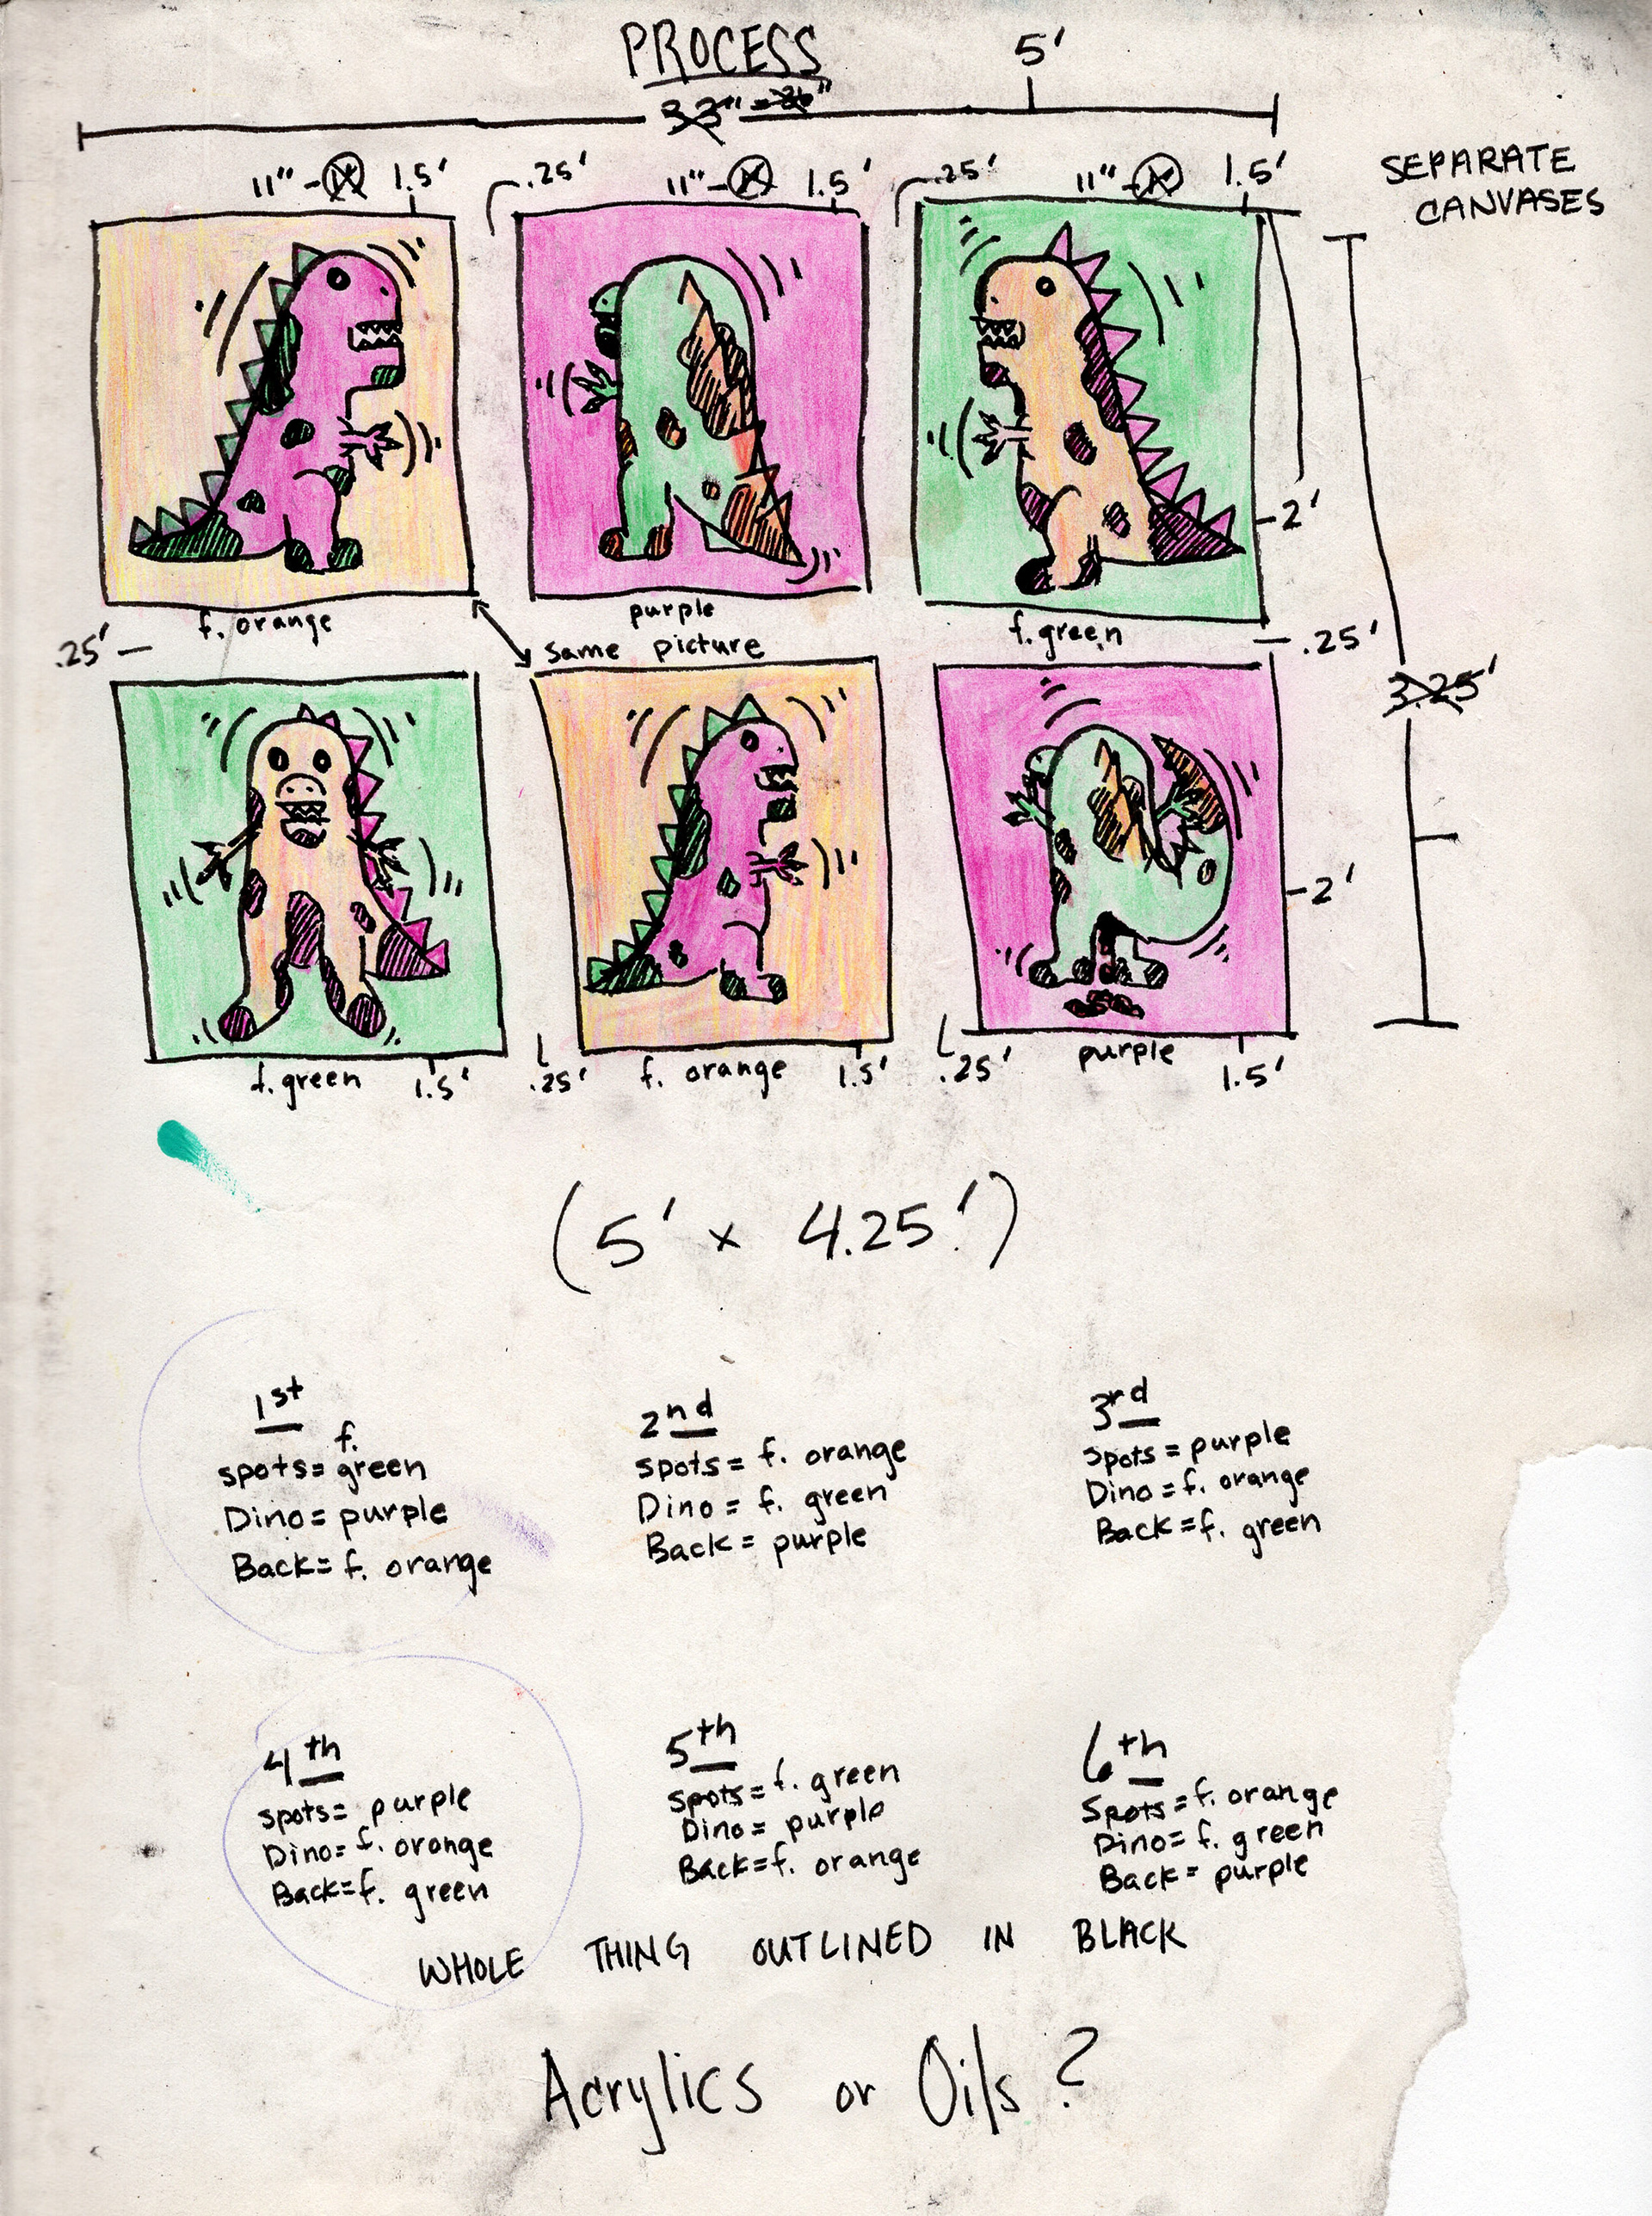 PROCESS
5'
33"
SEPARATE
CANVASES
11" - 1.5'
.25'
11" - 1.5'
.25'
11" - 1.5'
2'
f. orange
purple
f. green
.25'
same picture
.25'
3.25'
2'
f. green
1.5'
.25'
f. orange
1.5'
.25'
purple
1.5'
(5' x 4.25')
1st
f.
spots= green
Dino= purple
Back= f. orange
2nd
spots= f. orange
Dino= f. green
Back= purple
3rd
spots= purple
Dino= f. orange
Back= f. green
4th
spots= purple
Dino= f. orange
Back= f. green
5th
spots= f. green
Dino= purple
Back= f. orange
6th
spots= f. orange
Dino= f. green
Back= purple
WHOLE THING OUTLINED IN BLACK
Acrylics or Oils?